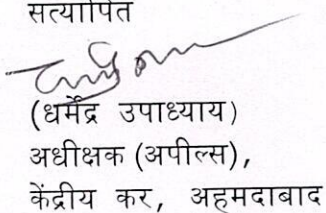 सत्यापित
(धर्मेंद्र उपाध्याय)
अधीक्षक (अपील्स),
केंद्रीय कर, अहमदाबाद